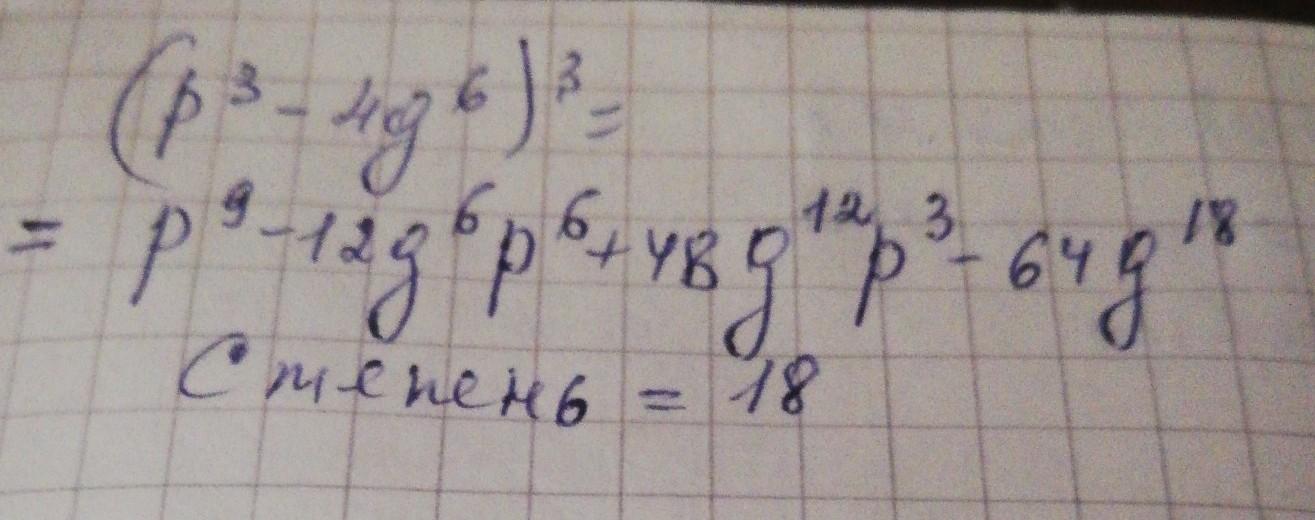 (p³ - 4g⁶)³ =
= p⁹ - 12g⁶p⁶ + 48g¹²p³ - 64g¹⁸
Степень = 18